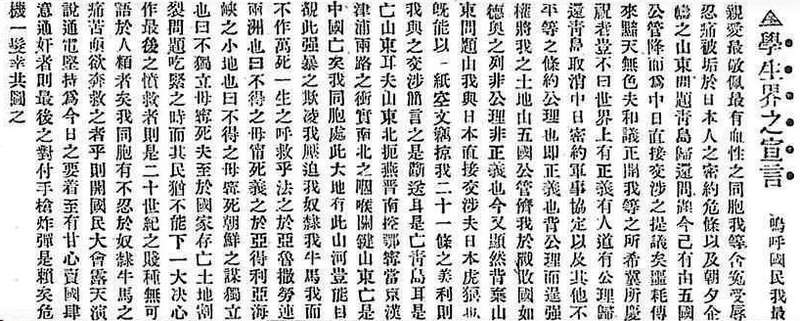 學生界之宣言 嗚呼國民我最
親愛最敬佩最有血性之同胞我等含寃受辱
忍痛被垢於日本人之密約危條以及朝夕企
禱之山東問題青島歸還問題今已有由五國
公管降而為中日直接交涉之提議矣噩耗傳
來黯天無色夫和議正開我等之所希冀所慶
祝者豈不曰世界上有正義有人道有公理歸
還青島取消中日密約軍事協定以及其他不
平等之條約公理也即正義也背公理而逞强
權將我之土地由五國公管儕我於戰敗國如
德奧之列非公理非正義也今又顯然背棄山
東問題由我與日本直接交涉夫日本虎狼也
旣能以一紙空文竊掠我二十一條之美利則
我與之交涉簡言之是斷送耳是亡青島耳是
亡山東耳夫山東北扼燕晋南控鄂寧當京漢
津浦兩路之衝實南北之咽喉關鍵山東亡是
中國亡矣我同胞處此大地有此山河豈能目
覩此强暴之欺凌我壓迫我奴隷我牛馬我而
不作萬死一生之呼救乎法之於亞魯撒勞連
兩洲也曰不得之毋寗死義之於亞得利亞海
峽之小地也曰不得之毋寗死朝鮮之謀獨立
也曰不獨立毋寗死夫至於國家存亡土地割
裂問題吃緊之時而其民猶不能下一大决心
作最後之憤救者則是二十世紀之賤種無可
語於人類者矣我同胞有不忍於奴隷牛馬之
痛苦亟欲奔救之者乎則開國民大會露天演
說通電堅持為今日之要着至有甘心賣國肆
意通奸者則最後之對付手槍炸彈是賴矣危
機一髮幸共圖之